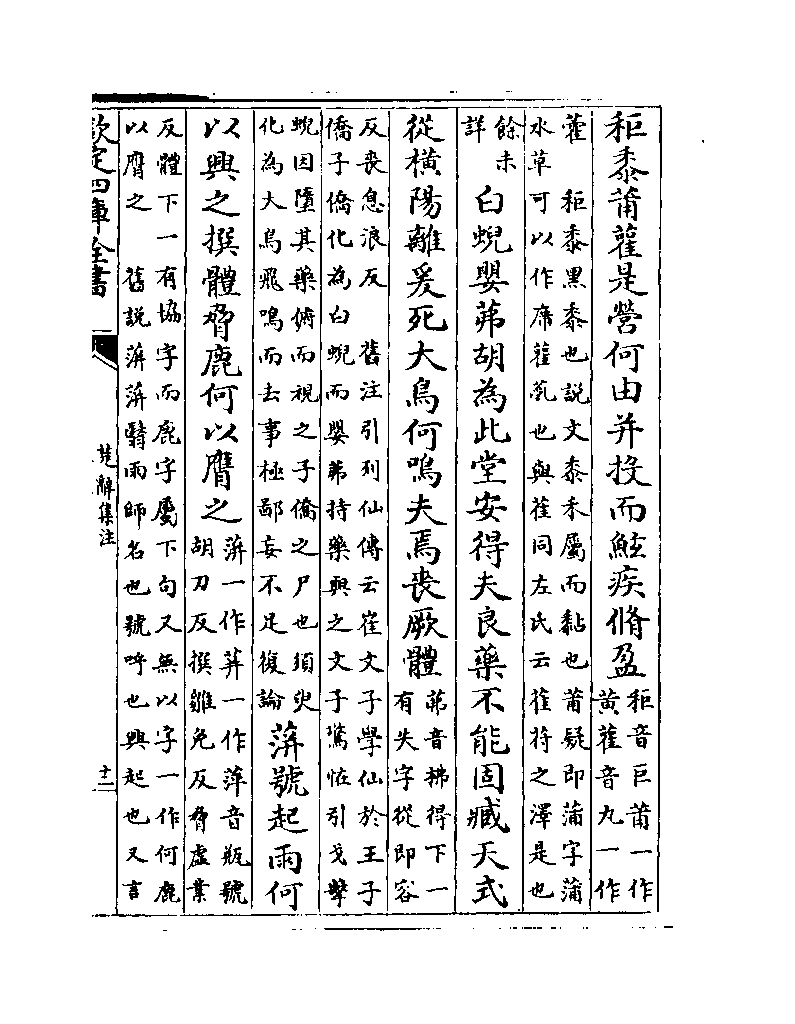 秬黍莆雚是營何由并投而鮌疾脩盈秬音巨莆一作
黄雚音丸一作
雚　秬黍黒黍也説文黍禾屬而黏也莆疑即蒲字蒲
水草可以作席雚薍也與萑同左氏云萑苻之澤是也
餘未
詳　白蜺嬰茀胡為此堂安得夫良藥不能固臧天式
從横陽離爰死大鳥何鳴夫焉喪厥體茀音拂得下一
有失字從即容
反喪息浪反　舊注引列仙傳云崔文子學仙於王子
僑子僑化為白蜺而嬰茀持藥與之文子驚怪引戈擊
蜺因墮其藥俯而視之子僑之尸也須臾
化為大鳥飛鳴而去事極鄙妄不足復論
蓱號起雨何
以興之撰體脅鹿何以膺之蓱一作荓一作萍音瓶號
胡刀反撰雛免反脅虚業
反體下一有協字而鹿字屬下句又無以字一作何鹿
以膺之　舊説蓱蓱翳雨師名也號呼也興起也又言
欽定四庫全書
楚辭集注
十二